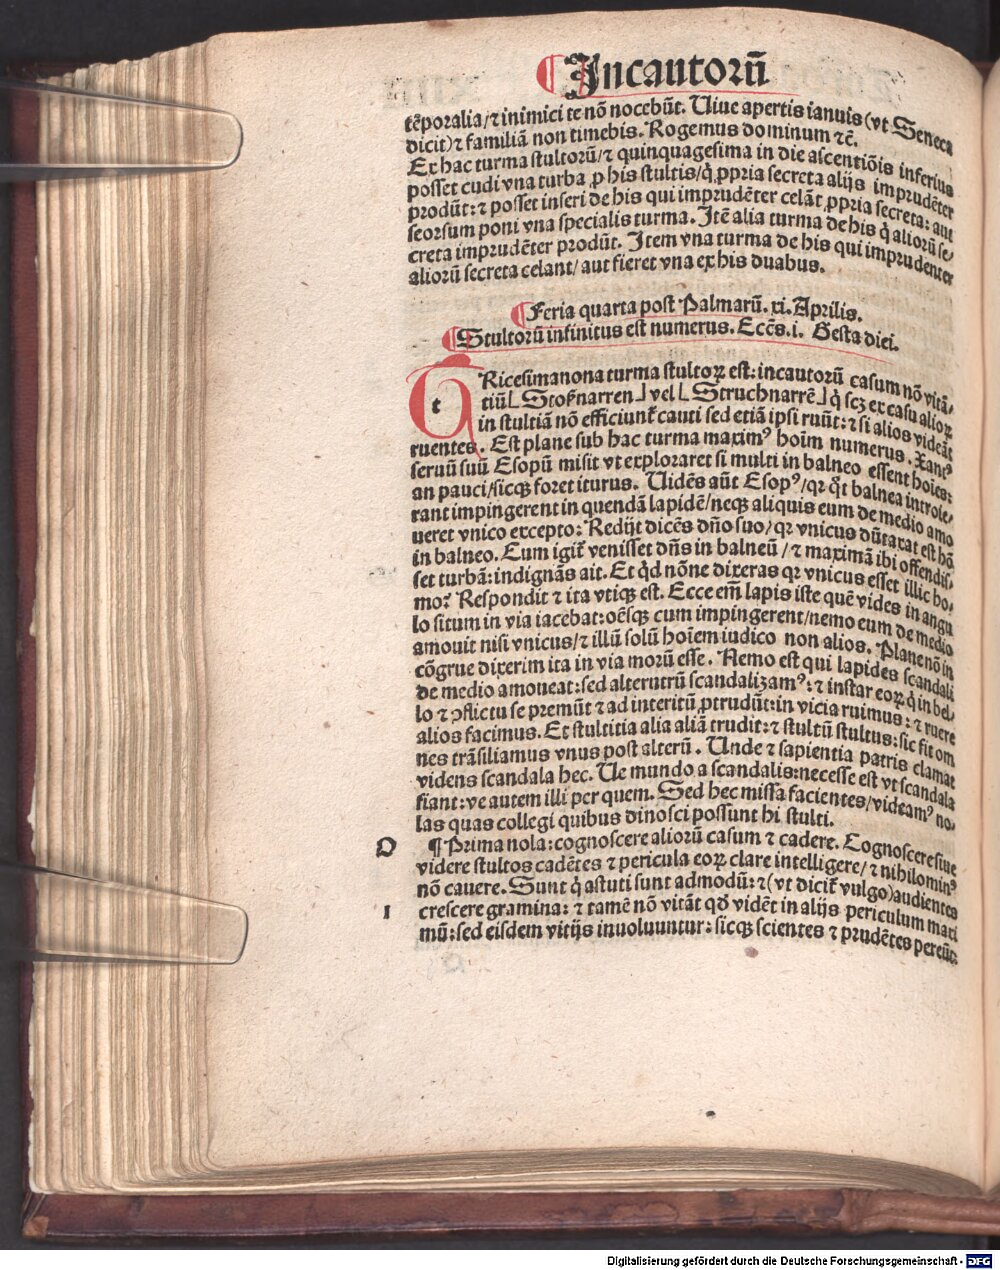 ¶Incautorū
tēporalia/⁊ inimici te nō nocebūt. Uiue apertis ianuis (vt Seneca
dicit)⁊ familiā non timebis. Rogemus dominum ⁊c̄.
Ex hac turma stultorū/⁊ quinquagesima in die ascentiōis inferius
posset cudi vna turba ꝓ his stultis/q̇ ꝓpria secreta alijs imprudēter
produ̅t: ⁊ posset inseri de his qui imprudēter celāt ꝓpria secreta: aut
seorsum poni vna specialis turma. Itē alia turma de his q̇ aliorū se/
creta imprudēter produ̅t. Item vna turma de his qui imprudenter
aliorū secreta celant/ aut fieret vna ex his duabus.
¶Feria quarta post Palmarū. xi. Aprilis.
¶Stultorū infinitus est numerus. Eccēs. i. Gesta diei.
t Ricesimanona turma stultoꝝ est: incautorū casum nō vitā/
tiū⌊Stoßnarren⌋vel⌊Struchnarrē⌋q̇ scꝫ ex casu alioꝝ
in stultiā nō efficiunt̄ cauti sed etiā ipsi ruūt: ⁊ si alios videāt
ruentes. Est plane sub hac turma maximꝰ hoīm numerus. Xantꝰ
seruū suū Esopū misit vt exploraret si multi in balneo essent hoīes:
an pauci/sicqꝫ foret iturus. Uidēs aūt Esopꝰ/qꝛ q̇t balnea introie/
rant impingerent in quendā lapidē/neqꝫ aliquis eum de medio amo
ueret vnico excepto: Redijt dicēs dño suo/qꝛ vnicus dūtaxat est hō
in balneo. Eum igit̄ venisset dñs in balneū/⁊ maximā ibi offendis/
set turbā: indignās ait. Et q̇d nōne dixeras qꝛ vnicus esset illic ho/
mo? Respondit ⁊ ita vtiqꝫ est. Ecce em̄ lapis iste quē vides in angu
lo situm in via iacebat: oēsqꝫ cum impingerent/nemo eum de medio
amouit nisi vnicus/⁊ illū solū hoīem iudico non alios. Plane nō in
cōgrue dixerim ita in via morū esse. Nemo est qui lapides scandali
de medio amoueat: sed alterutrū scandalizamꝰ: ⁊ instar eoꝝ q̇ in bel/
lo ⁊ ꝯflictu se premūt ⁊ ad interitū ꝓtrudūt: in vicia ruimus: ⁊ ruere
alios facimus. Et stultitia alia aliā trudit: ⁊ stultū stultus: sic fit om
nes trāsiliamus vnus post alterū. Unde ⁊ sapientia patris clamat
videns scandala hec. Ue mundo a scandalis: necesse est vt scandala
fiant: ve autem illi per quem. Sed hec missa facientes/videamꝰ no/
las quas collegi quibus dinosci possunt hi stulti.
O ¶Prima nola: cognoscere aliorū casum ⁊ cadere. Cognoscere siue
videre stultos cadētes ⁊ pericula eoꝝ clare intelligere/⁊ nihilominꝰ
nō cauere. Sunt q̇ astuti sunt admodū: ⁊ (vt dicit̄ vulgo)audientes
I crescere gramina: ⁊ tamē nō vitāt qd̄ vidēt in alijs periculum maxi
mū: sed eisdem vitijs inuoluuntur: sicqꝫ scientes ⁊ prudētes pereūt:
Digitalisierung gefördert durch die Deutsche Forschungsgemeinschaft - DFG